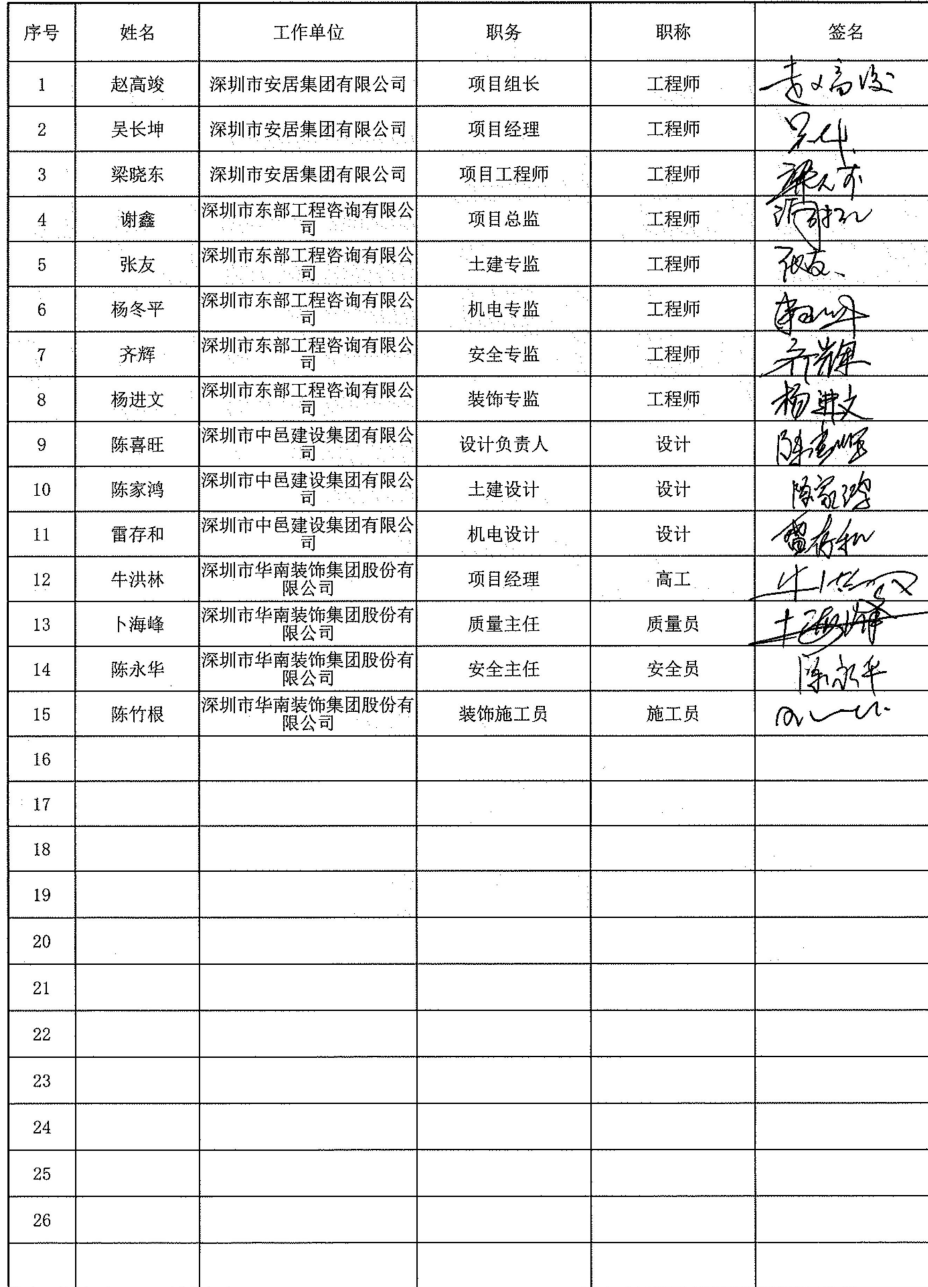 序号 姓名 工作单位 职务 职称 签名
1 赵高竣 深圳市安居集团有限公司 项目组长 工程师 赵高竣
2 吴长坤 深圳市安居集团有限公司 项目经理 工程师
3 梁晓东 深圳市安居集团有限公司 项目工程师 工程师
4 谢鑫 深圳市东部工程咨询有限公司 项目总监 工程师
5 张友 深圳市东部工程咨询有限公司 土建专监 工程师 张友
6 杨冬平 深圳市东部工程咨询有限公司 机电专监 工程师
7 齐辉 深圳市东部工程咨询有限公司 安全专监 工程师 齐辉
8 杨进文 深圳市东部工程咨询有限公司 装饰专监 工程师 杨进文
9 陈喜旺 深圳市中邑建设集团有限公司 设计负责人 设计 陈喜旺
10 陈家鸿 深圳市中邑建设集团有限公司 土建设计 设计 陈家鸿
11 雷存和 深圳市中邑建设集团有限公司 机电设计 设计 雷存和
12 牛洪林 深圳市华南装饰集团股份有限公司 项目经理 高工
13 卜海峰 深圳市华南装饰集团股份有限公司 质量主任 质量员 卜海峰
14 陈永华 深圳市华南装饰集团股份有限公司 安全主任 安全员 陈永华
15 陈竹根 深圳市华南装饰集团股份有限公司 装饰施工员 施工员
16
17
18
19
20
21
22
23
24
25
26